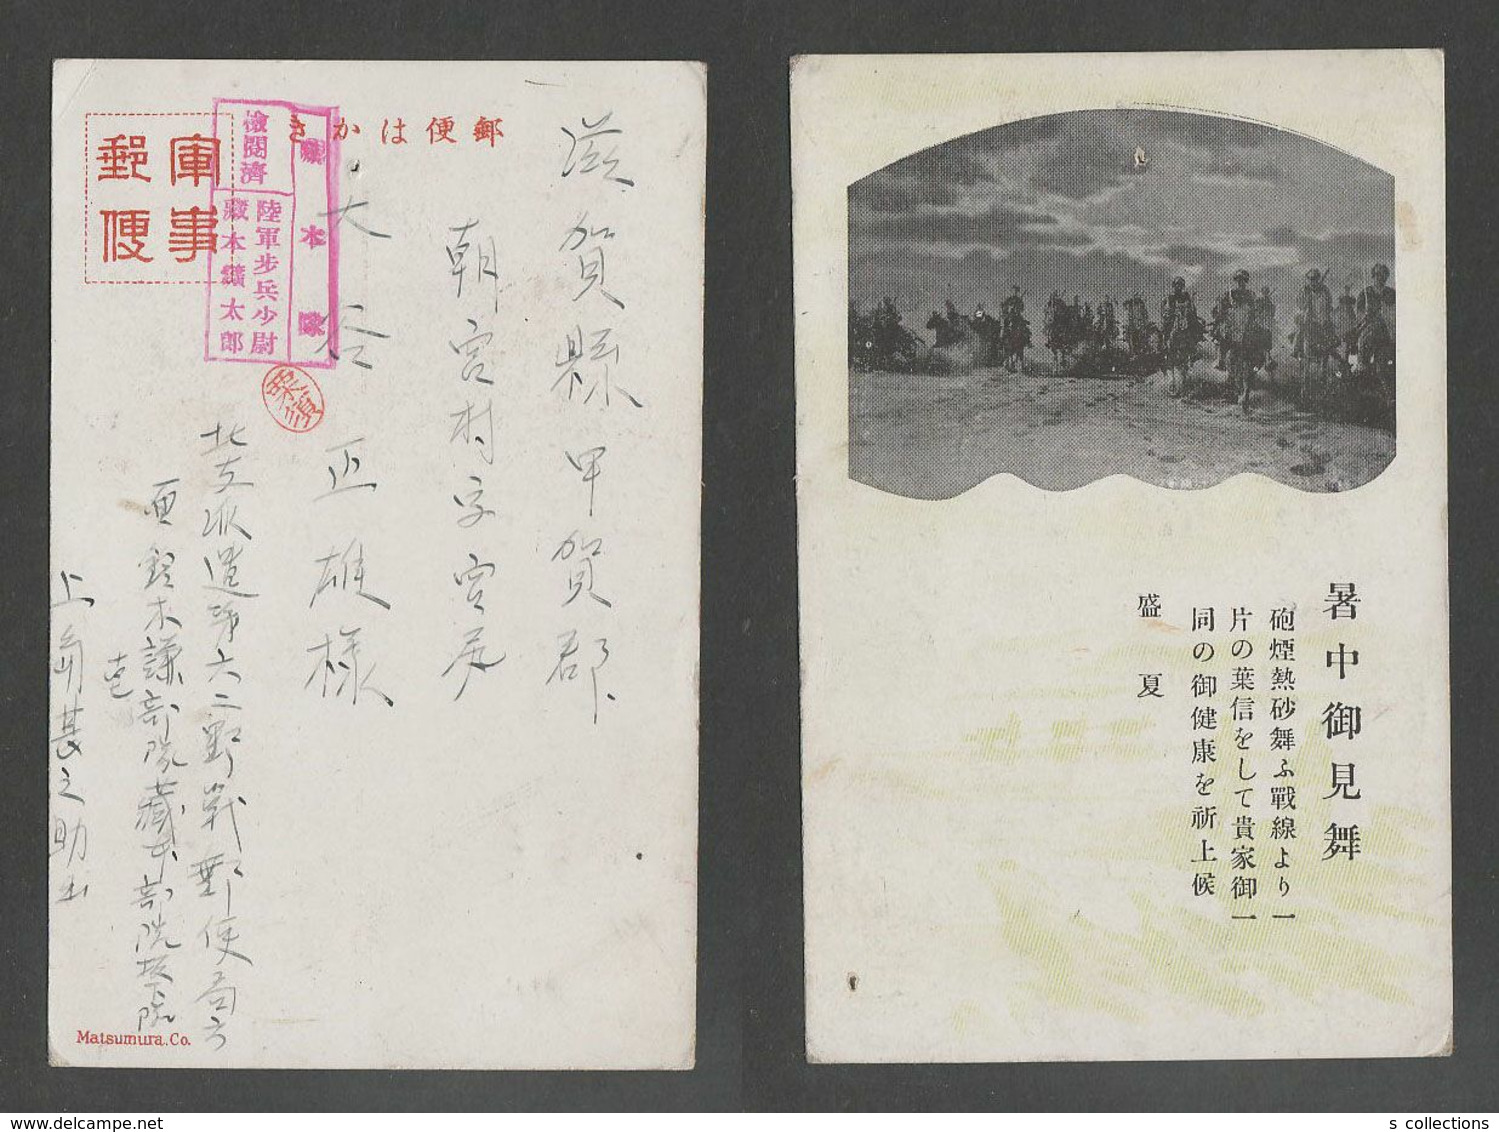 郵便はかき
軍事
郵便
檢閲濟
本
隊
陸軍步兵少尉
藏本鑛太郎
滋賀縣甲賀郡
朝宮村字宮尻
大谷正雄様
北支派遣第六二野戰郵便局
鈴木謙部隊藏本部隊坂下隊
上
甚之助
Matsumura.Co.
暑中御見舞
砲煙熱砂舞ふ戰線より一
片の葉信をして貴家御一
同の御健康を祈上候
盛夏
s collections